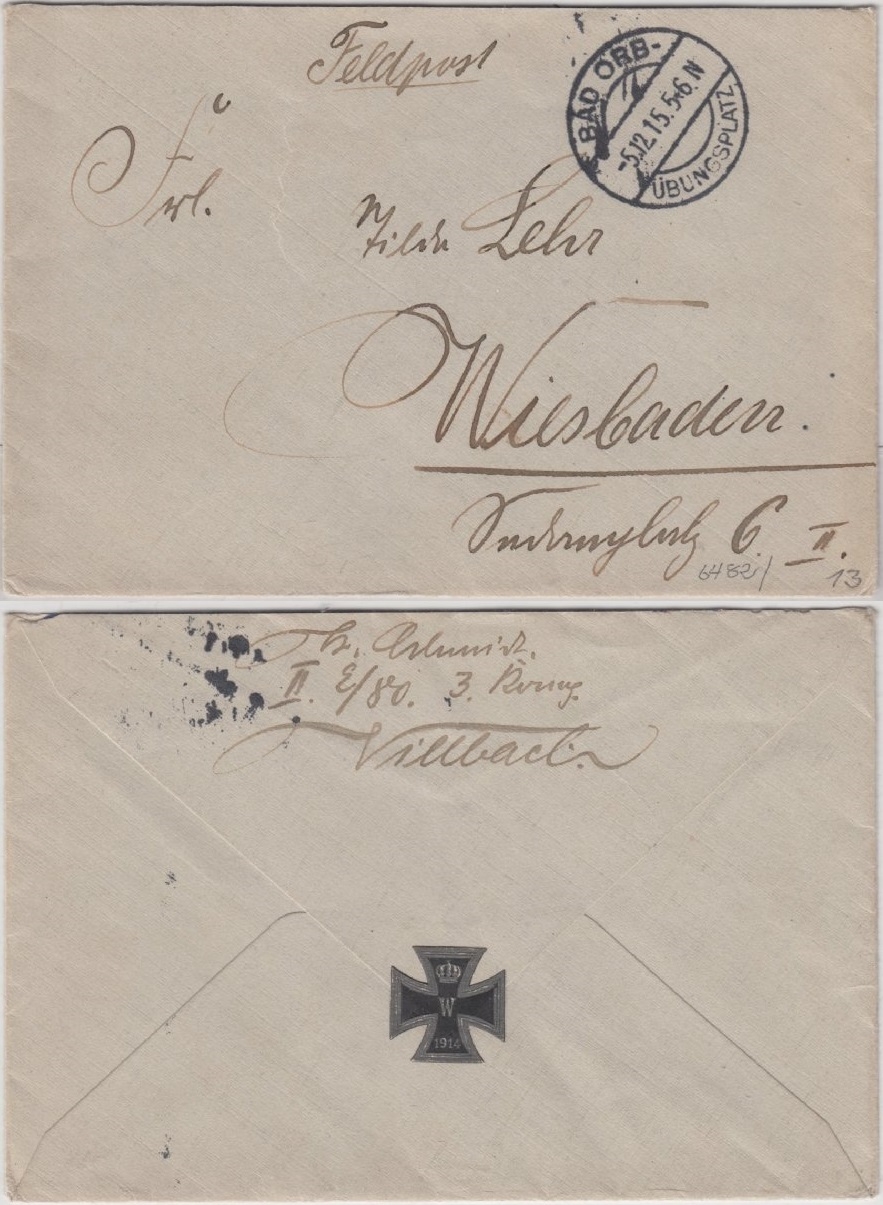 Feldpost
BAD ORB-
-5.12.15.5-6 N
ÜBUNGSPLATZ
Frl.
Tilda Lehr
Wiesbaden.
6 II.
6482
13
Schmidt.
II. E/80. 3. Komp.
Villbach.
W
1914